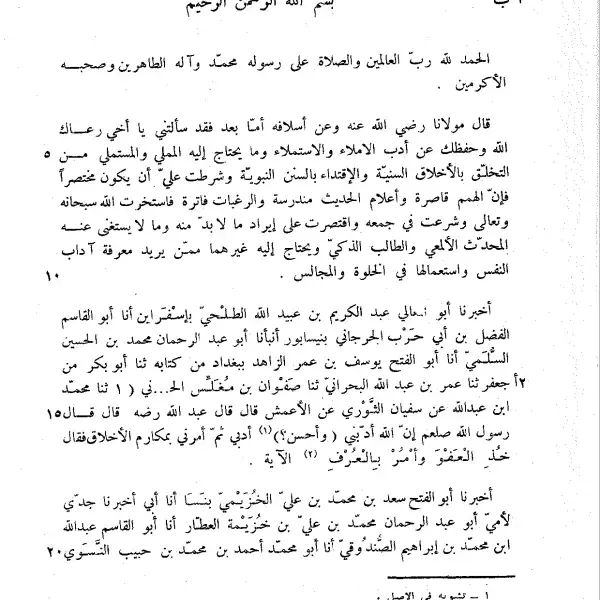 بسم الله الرحمن الرحيم
الحمد لله ربّ العالمين والصلاة على رسوله محمّد وآله الطاهرين وصحبه
الأكرمين .
قال مولانا رضي الله عنه وعن أسلافه أمّا بعد فقد سألتني يا أخي رعاك
الله وحفظك عن أدب الاملاء والاستملاء وما يحتاج إليه المملي والمستملي من ٥
التخلّق بالأخلاق السنيّة والإقتداء بالسنن النبويّة وشرطت عليّ أن يكون مختصراً
فإنّ الهمم قاصرة وأعلام الحديث مندرسة والرغبات فاترة فاستخرت الله سبحانه
وتعالى وشرعت في جمعه واقتصرت على إيراد ما لا بدّ منه وما لا يستغنى عنه
المحدّث الألمعي والطالب الذكيّ ويحتاج إليه غيرهما ممّن يريد معرفة آداب
النفس واستعمالها في الخلوة والمجالس . ١٠
أخبرنا أبو عبد الكريم بن عبيد الله الطلحيّ بإسْفَراين أنا أبو القاسم
الفضل بن أبي حَرْب الجرجاني بنيسابور أنبأنا أبو عبد الرحمان محمد بن الحسين
السُّلَميّ أنا أبو الفتح يوسف بن عمر الزاهد ببغداد من كتابه ثنا أبو بكر من
٢أ جعفر ثنا عمر بن عبد الله البحرانيّ ثنا صَفْوان بن مُغَلِّس الحـ...ني ( ١ ثنا محمّد
ابن عبدالله عن سفيان الثَّوْري عن الأعمش قال قال عبد الله رضه قال قال ١٥
رسول الله صلعم إنّ الله أدّبني ( وأحسن؟)(١) أدبي ثمّ أمرني بمكارم الأخلاق فقال
خُذِ الْعَفْوَ وَأْمُرْ بِالْعُرْفِ (٢) الآية .
أخبرنا أبو الفتح سعد بن محمّد بن عليّ الخُزَيْميّ بنَسَا أنا أبي أخبرنا جدّي
لأميّ أبو عبد الرحمان محمّد بن عليّ بن خُزَيْمة العطّار أنا أبو القاسم عبدالله
ابن محمّد بن إبراهيم الصُّندُوقيّ أنا أبو محمّد أحمد بن محمّد بن حبيب النَّسَوي ٢٠
١ – تشويه في الاصل .